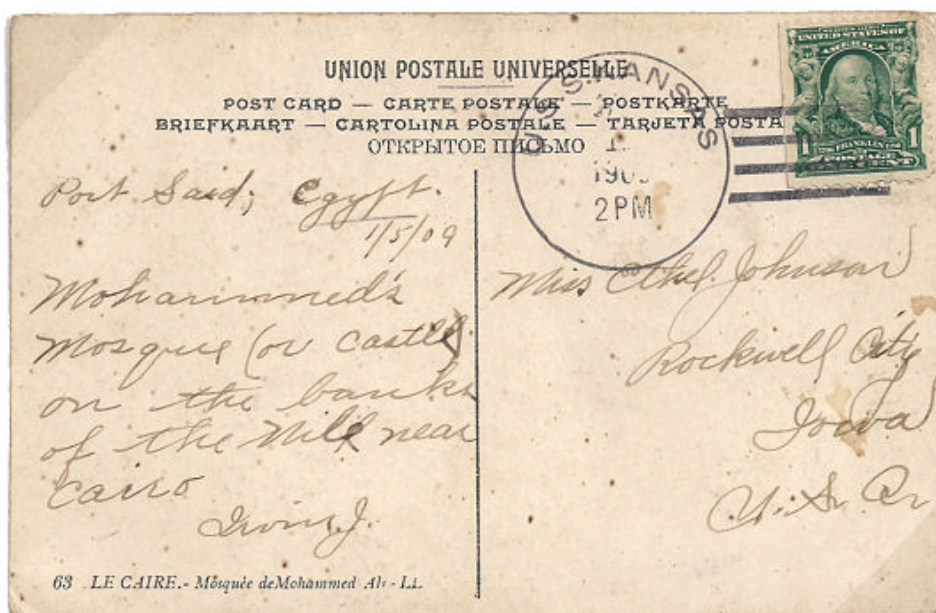 UNION POSTALE UNIVERSELLE
POST CARD — CARTE POSTALE — POSTKARTE
BRIEFKAART — CARTOLINA POSTALE — TARJETA POSTA
ОТКРЫТОЕ ПИСЬМО
U.S.S. KANSAS
2PM
UNITED STATES OF
AMERICA
1 FRANKLIN 1
Port Said, Egypt.
1/5/09
Mohammed's
Mosque (or Castle)
on the banks
of the Nile near
Cairo
Irving J.
Miss Ethel Johnson
Rockwell City
Iowa
U.S.A.
63 LE CAIRE.- Mosquée de Mohammed Ali - LL.